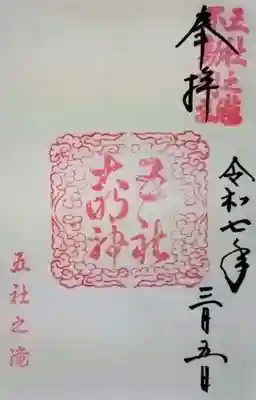 奉拝
五社之滝
令和七年
三月五日
五社
大明神
五社之滝